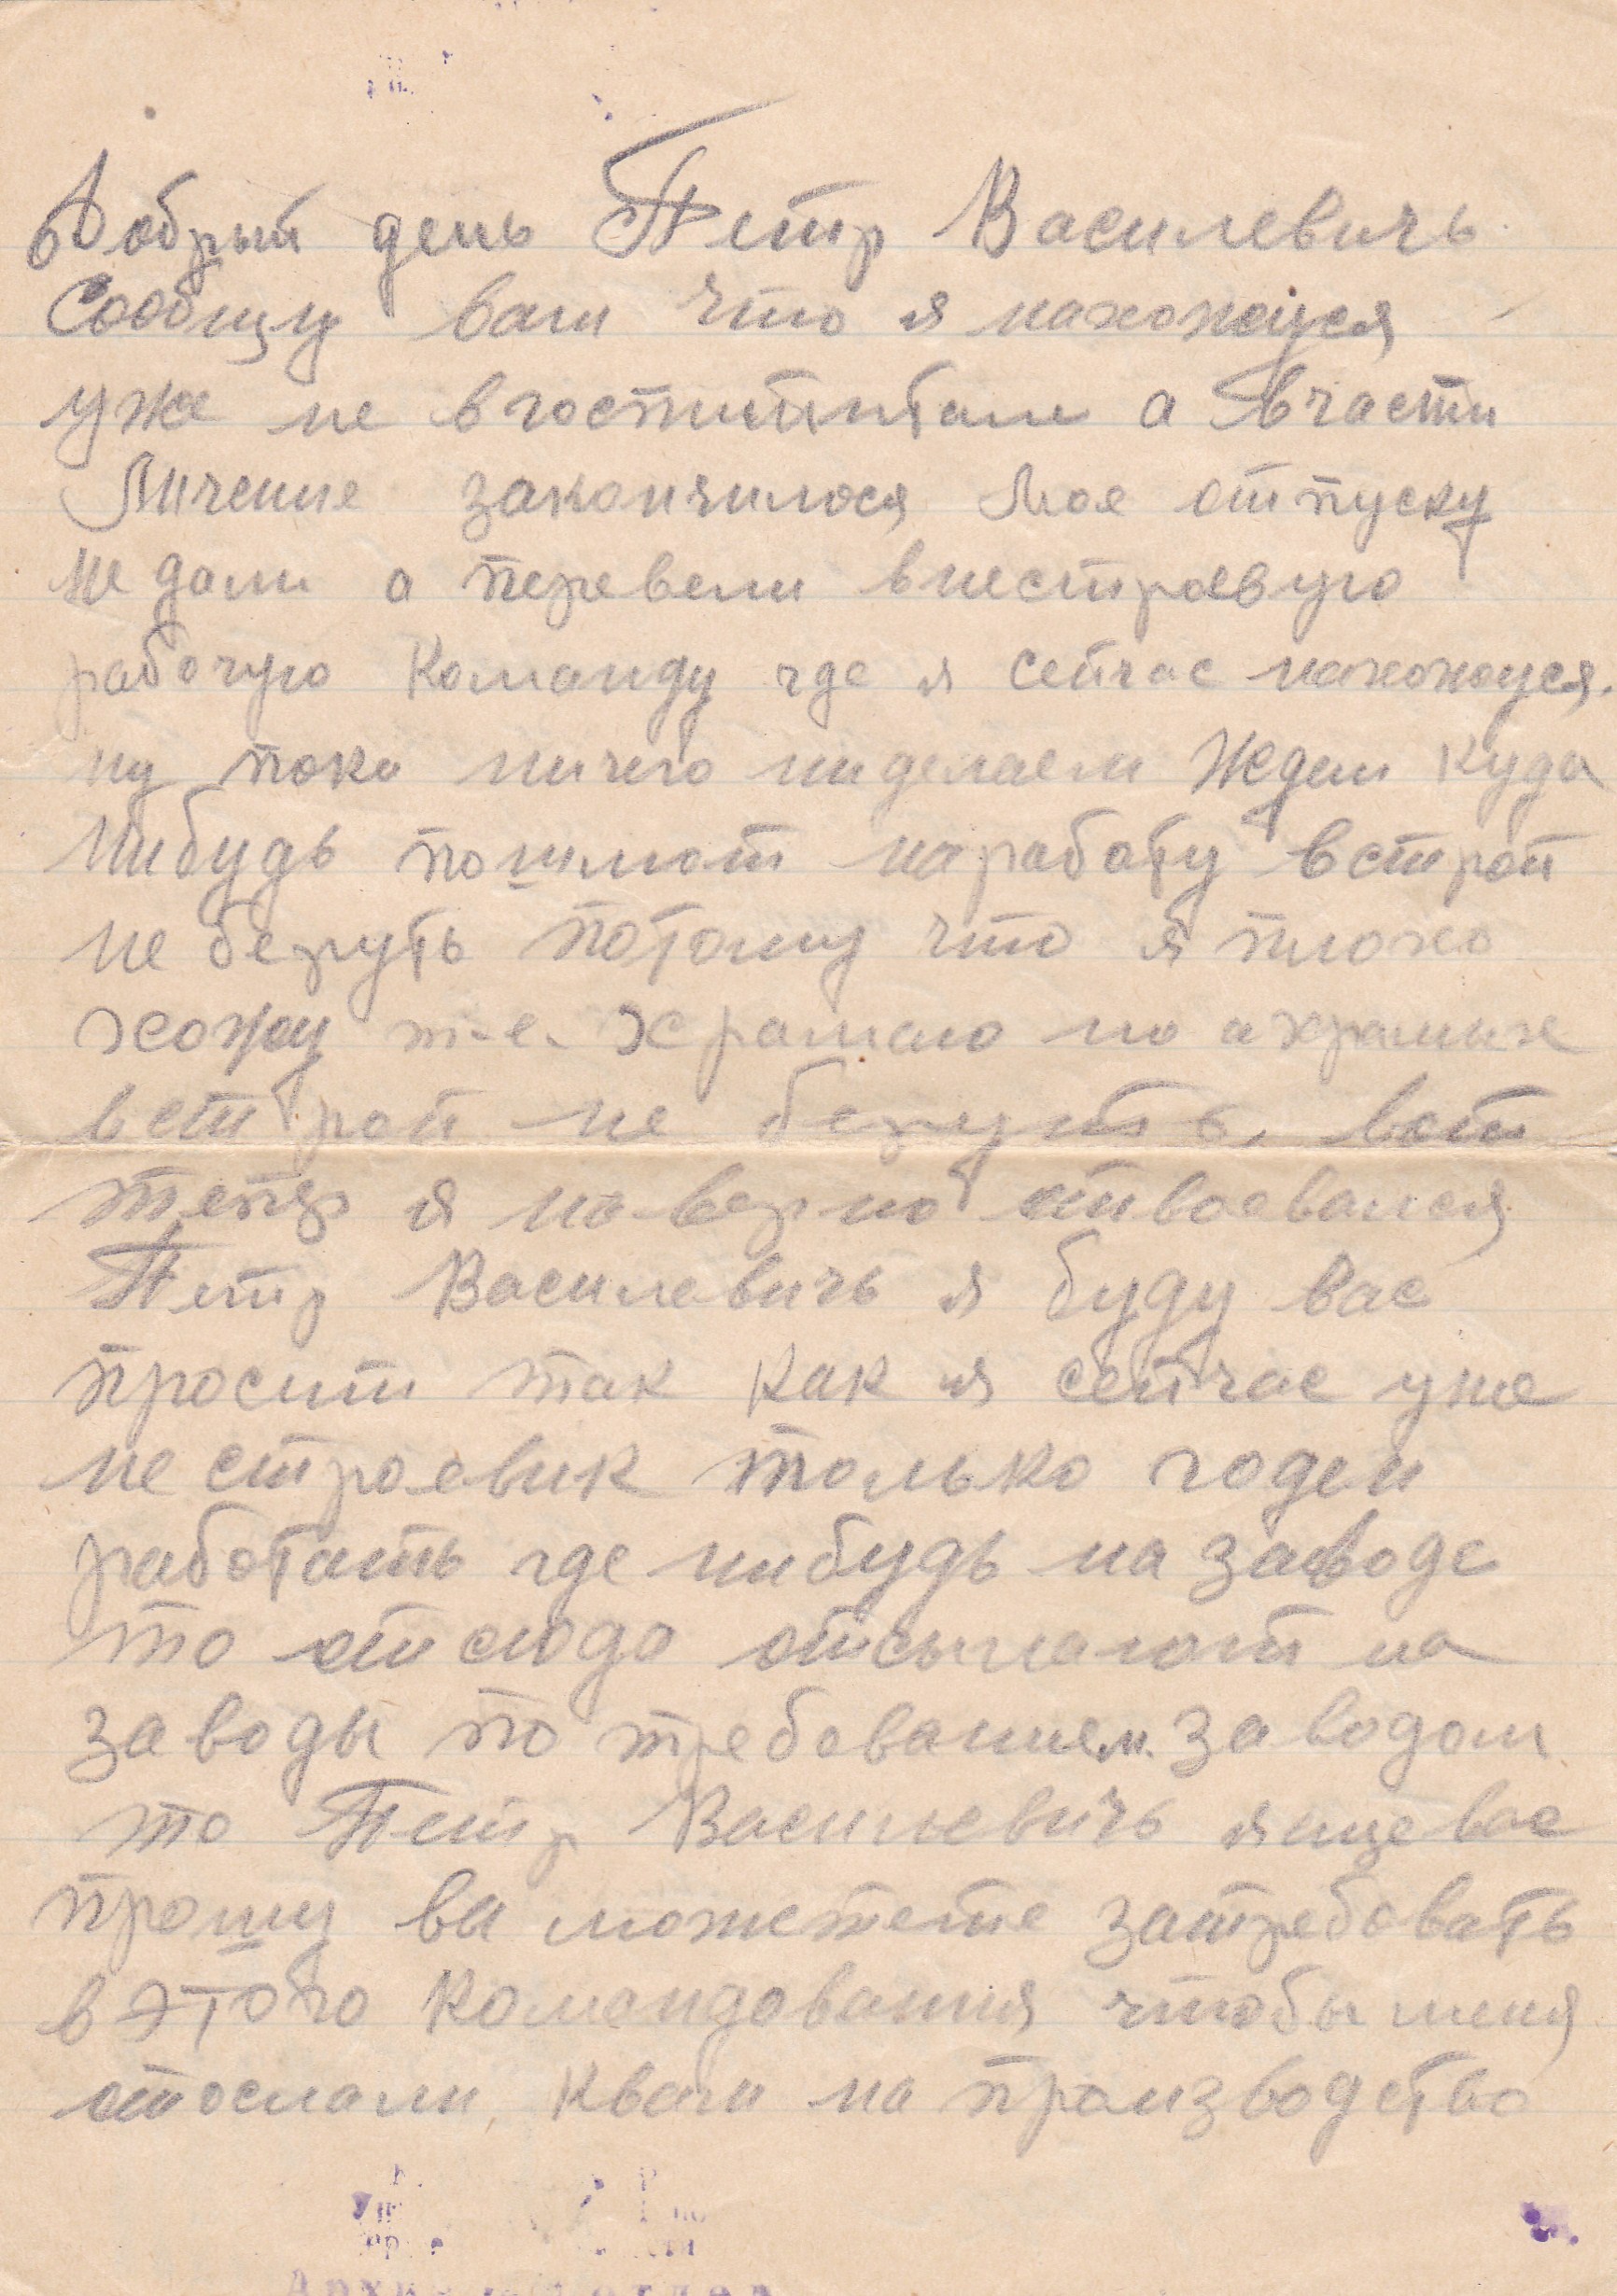 Добрый день Петр Василевичь
Сообщу вам что я нахожуся
уже не вгоспитале а вчасти
Личение закончилося Мое отпуску
не дали а перевели внестроевую
рабочую команду где я сейчас нахожуся.
ну пока ничего ниделаем Ждем куда
нибудь пошлют наработу встрой
не беруть потому что я плохо
хожу т.е. храмаю но а храмых
встрой не беруть. вот
тепер я наверно отвоевался
Петр Василевичь я буду вас
просити так как я сейчас уже
не строевик только годен
работать где нибудь на заводе
то отсюда отсылают на
заводы по требованием заводом
то Петр Васильевичь яище вас
прошу вы можетете затребовать
в этого командования чтобы меня
отослали квам на производство
Архи отдел